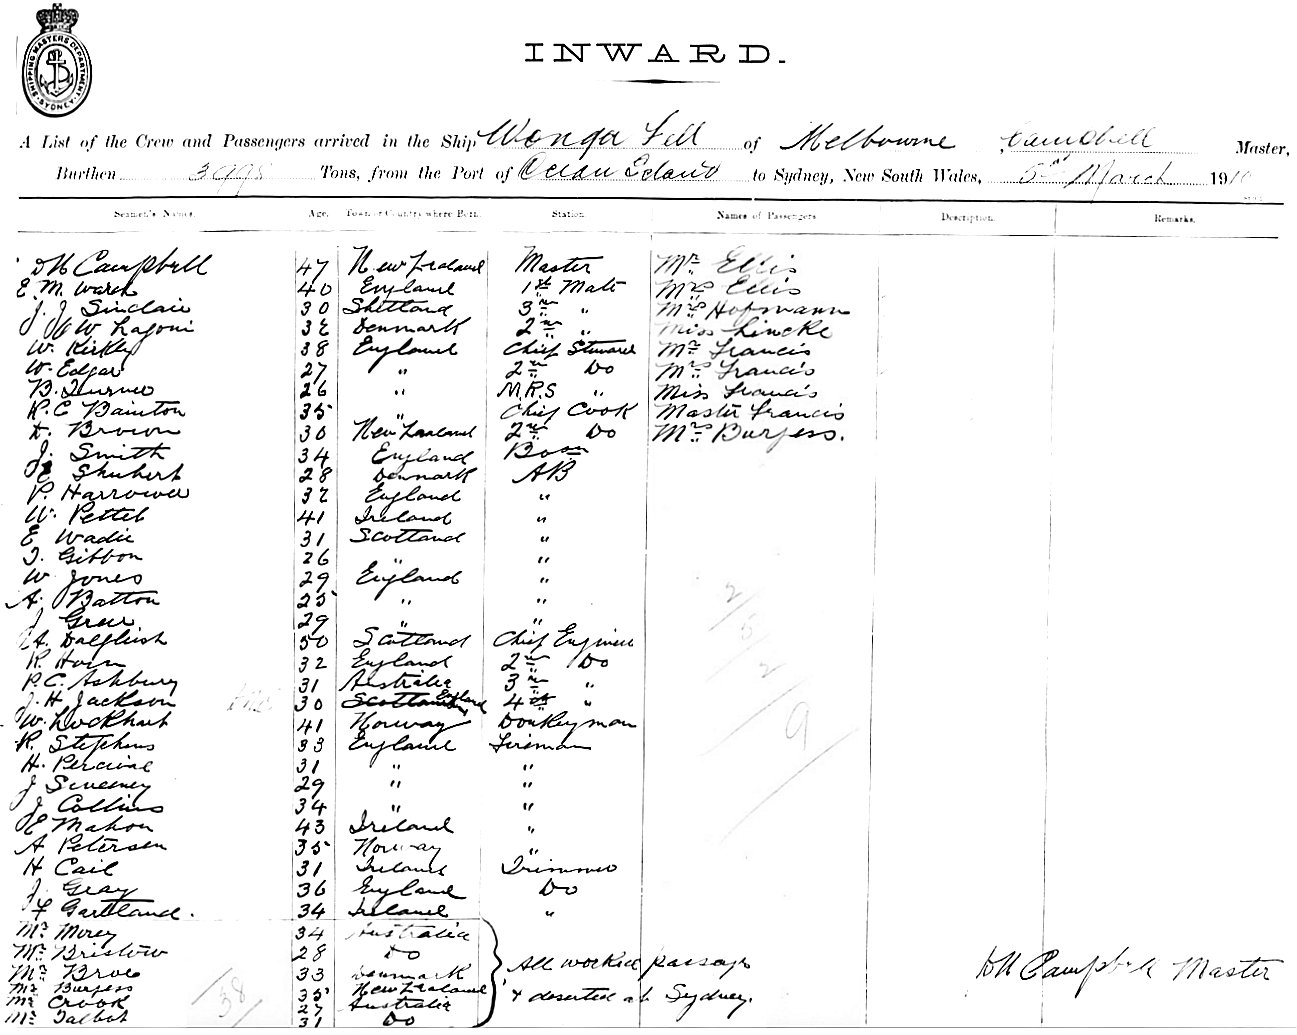 SHIPPING MASTERS DEPARTMENT SYDNEY
INWARD.
A List of the Crew and Passengers arrived in the Ship Wonga Fell of Melbourne Campbell Master,
Burthen 3998 Tons, from the Port of Ocean Island to Sydney, New South Wales, 5th March 1910
Seamen's Names. Age. Town or Country where Born. Station. Names of Passengers Description. Remarks.
D H Campbell 47 New Zealand Master Mr Ellis
E. M. Warch 40 England 1st Mate Mrs Ellis
J. J Sinclair 30 Shetland 3rd " Mrs Hofmann
W Lagoni 32 Denmark 2nd " Miss Lincke
W. Kirkley 38 England Chief Steward Mr Francis
W. Edgar 27 " 2nd Do Mrs Francis
B. Turner 26 " M.R.S " Miss Francis
R. C Bainton 35 " Chief Cook Master Francis
D. Brown 30 New Zealand 2nd Do Mrs Burgess.
J. Smith 34 England Bosn
E Shubert 28 Denmark AB
P. Harrower 32 England "
W. Pettet 41 Ireland "
E Wadie 31 Scotland "
T. Gibbon 26 " "
W Jones 29 England "
A. Batton 25 " "
J Greer 29 " "
A. Dalgliesh 50 Scotland Chief Engineer
R. Horn 32 England 2nd Do
P. C. Ashbury 31 Australia 3rd "
J. H Jackson 30 Scotland England 4th "
W. Lockhart 41 Norway Donkeyman
R. Stephens 33 England Fireman
H. Percival 31 " "
J Sweeney 29 " "
J Collins 34 " "
E Mahon 43 Ireland "
A Petersen 35 Norway "
H Cail 31 Ireland Trimmer
J. Gray 36 England Do
F Gartland. 34 Ireland "
Mr Morey 34 Australia
Mr Bristow 28 Do
Mr Broe 33 Denmark All worked passage
Mr Burgess 35 New Zealand & deserted at Sydney.
Mr Crook 27 Australia
Mr Talbot 31 Do
D H Campbell Master
38
2/5/2/9